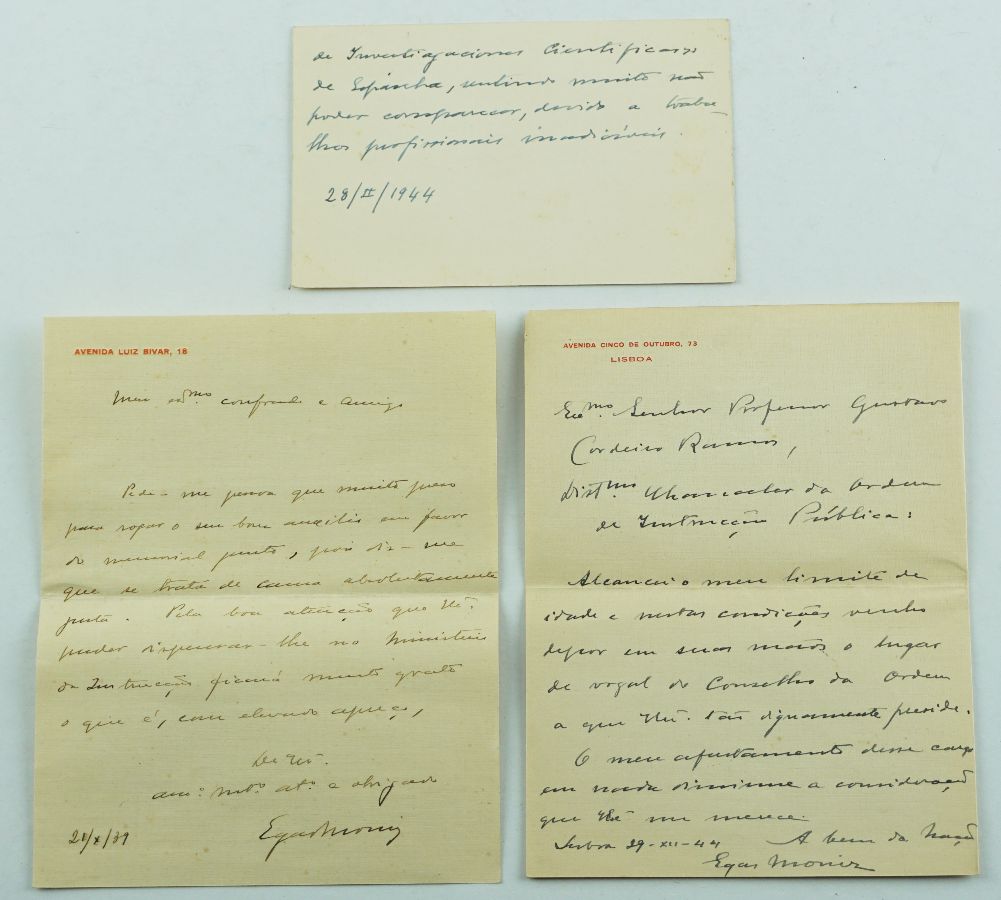 de Investigaciones Cientificas
de Espanha, sentindo muito não
poder comparecer, devido a traba-
lhos profissionais inadiáveis.
28/II/1944
AVENIDA LUIZ BIVAR, 18
Meu exmo confrade e amigo
Pede-me pessoa que muito prezo
para rogar o seu bom auxilio em favor
do memorial junto, pois diz-me
que se trata de causa absolutamente
justa. Pela boa atenção que
puder dispensar-lhe no Ministério
da Instrucção ficará muito grato
o que é, com elevado apreço,
De
amo mto ato e obrigado
Egas Moniz
21/X/39
AVENIDA CINCO DE OUTUBRO, 73
LISBOA
Exmo. Senhor Professor Gustavo
Cordeiro Ramos,
Distmo Chanceler da Ordem
de Instrucção Pública:
Alcancei o meu limite de
idade e nestas condições venho
depor em suas mãos o lugar
de vogal do Conselho da Ordem
a que tão dignamente preside.
O meu afastamento desse cargo
em nada diminue a consideração
que me merece.
Lisboa 29-XII-44
A bem da Nação
Egas Moniz